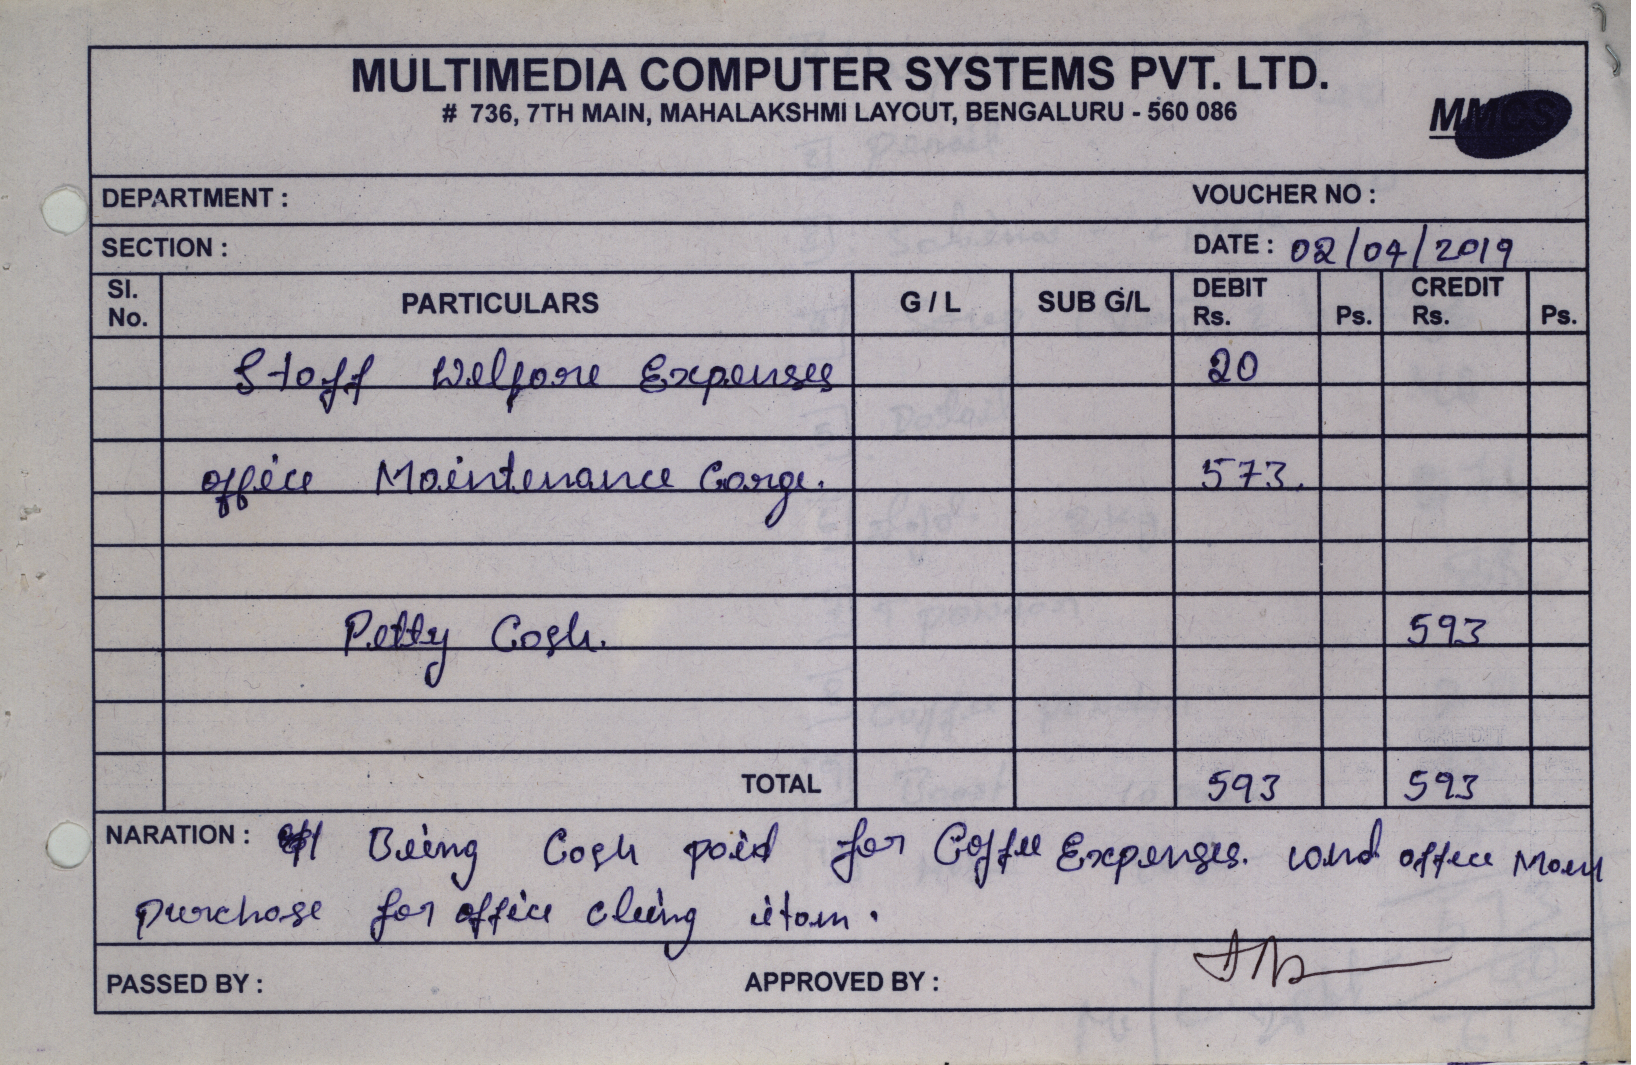 MULTIMEDIA COMPUTER SYSTEMS PVT. LTD.
# 736, 7TH MAIN, MAHALAKSHMI LAYOUT, BENGALURU - 560 086
MMCS
DEPARTMENT : VOUCHER NO :
SECTION : DATE : 02/04/2019
Sl. No. PARTICULARS G / L SUB G/L DEBIT Rs. Ps. CREDIT Rs. Ps.
Staff Welfare Expenses 20
office Maintenance Carge. 573.
Petty Cash. 593
TOTAL 593 593
NARATION : Being Cash paid for Coffee Expenses. and office
purchase for office cleing itam.
PASSED BY : APPROVED BY :